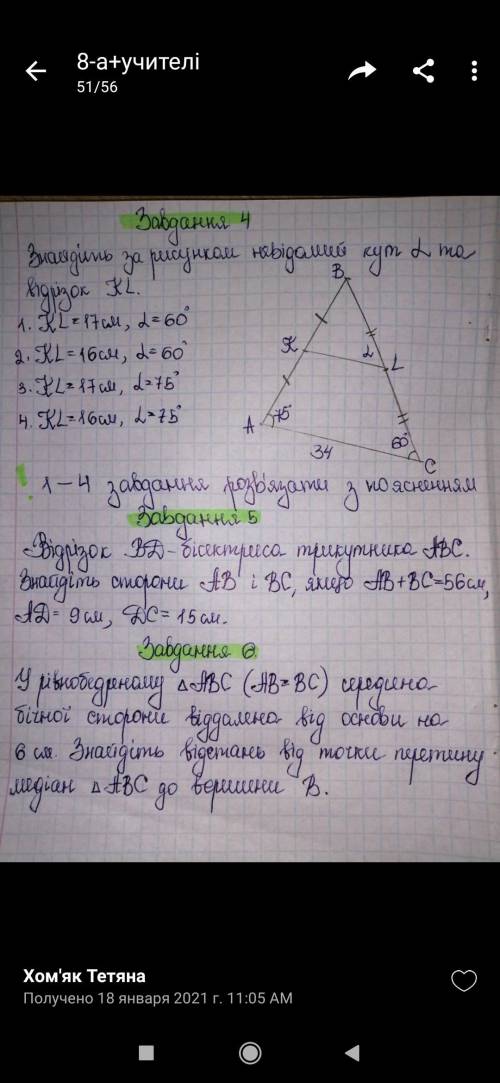 8-а+учителі
51/56
Завдання 4
Знайдіть за рисунком невідомий кут α та
відрізок KL.
1. KL=17см, α=60°
2. KL=16см, α=60°
3. KL=17см, α=75°
4. KL=16см, α=75°
B
K
α
L
A
75°
34
60°
C
! 1-4 завдання розв'язати з поясненням
Завдання 5
Відрізок BD-бісектриса трикутника ABC.
Знайдіть сторони AB і BC, якщо AB+BC=56см,
AD=9см, DC=15см.
Завдання 6
У рівнобедреному △ABC (AB=BC) середина
бічної сторони віддалена від основи на
6 см. Знайдіть відстань від точки перетину
медіан △ABC до вершини B.
Хом'як Тетяна
Получено 18 января 2021 г. 11:05 AM